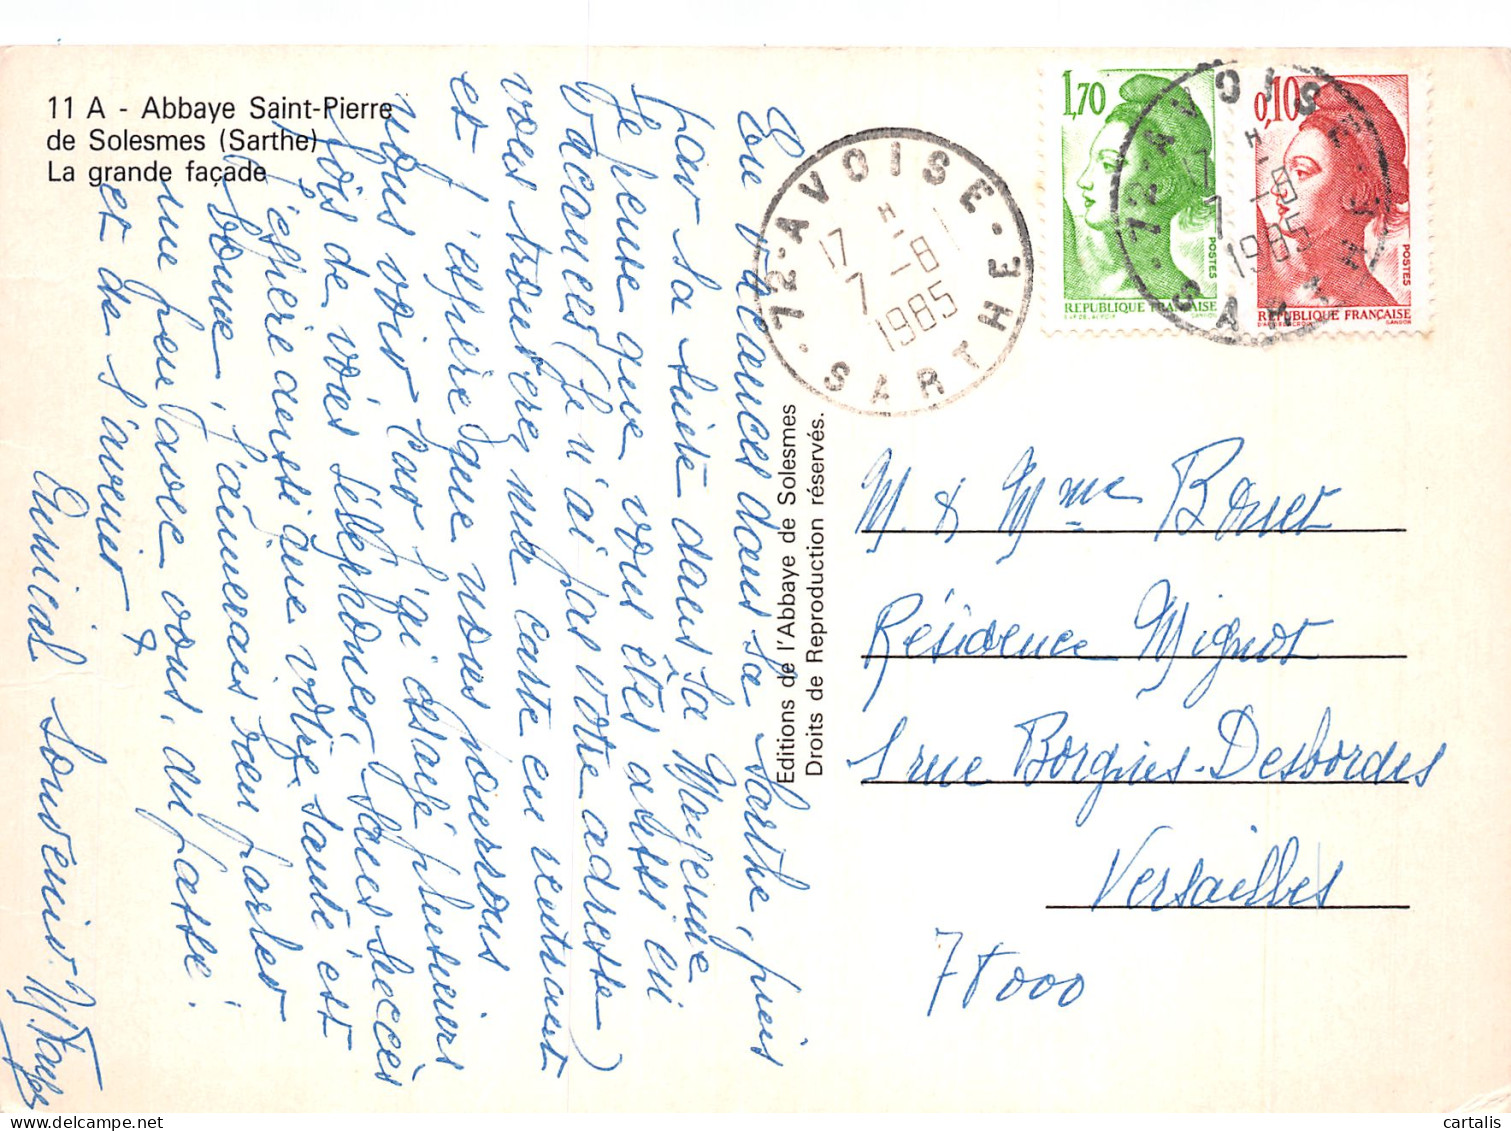 11 A - Abbaye Saint-Pierre
de Solesmes (Sarthe)
La grande façade
En vacances dans la Sarthe, puis
par la suite dans la Mayenne
Je pense que vous êtes aussi en
vacances (Je n'ai pas votre adresse)
vous trouverez ma carte en rentrant
et j'espère que nous pourrons
nous voir car j'ai essayé plusieurs
fois de vous téléphoner, sans succès
J'espère aussi que votre santé est
bonne, j'aimerais bien parler
un peu avec vous, du passé.
et de l'avenir
Amical souvenir.
Editions de l'Abbaye de Solesmes
Droits de Reproduction réservés.
72 - AVOISE - SARTHE
17 H
7 - 8
1985
1,70
POSTES
REPUBLIQUE FRANÇAISE
GANDON
0,10
POSTES
REPUBLIQUE FRANÇAISE
GANDON
72 - AVOISE SARTHE
17 H
7 - 8
1985
M. & Mme
Résidence Mignot
1 rue Borgnis-Desbordes
Versailles
78000
cartalis